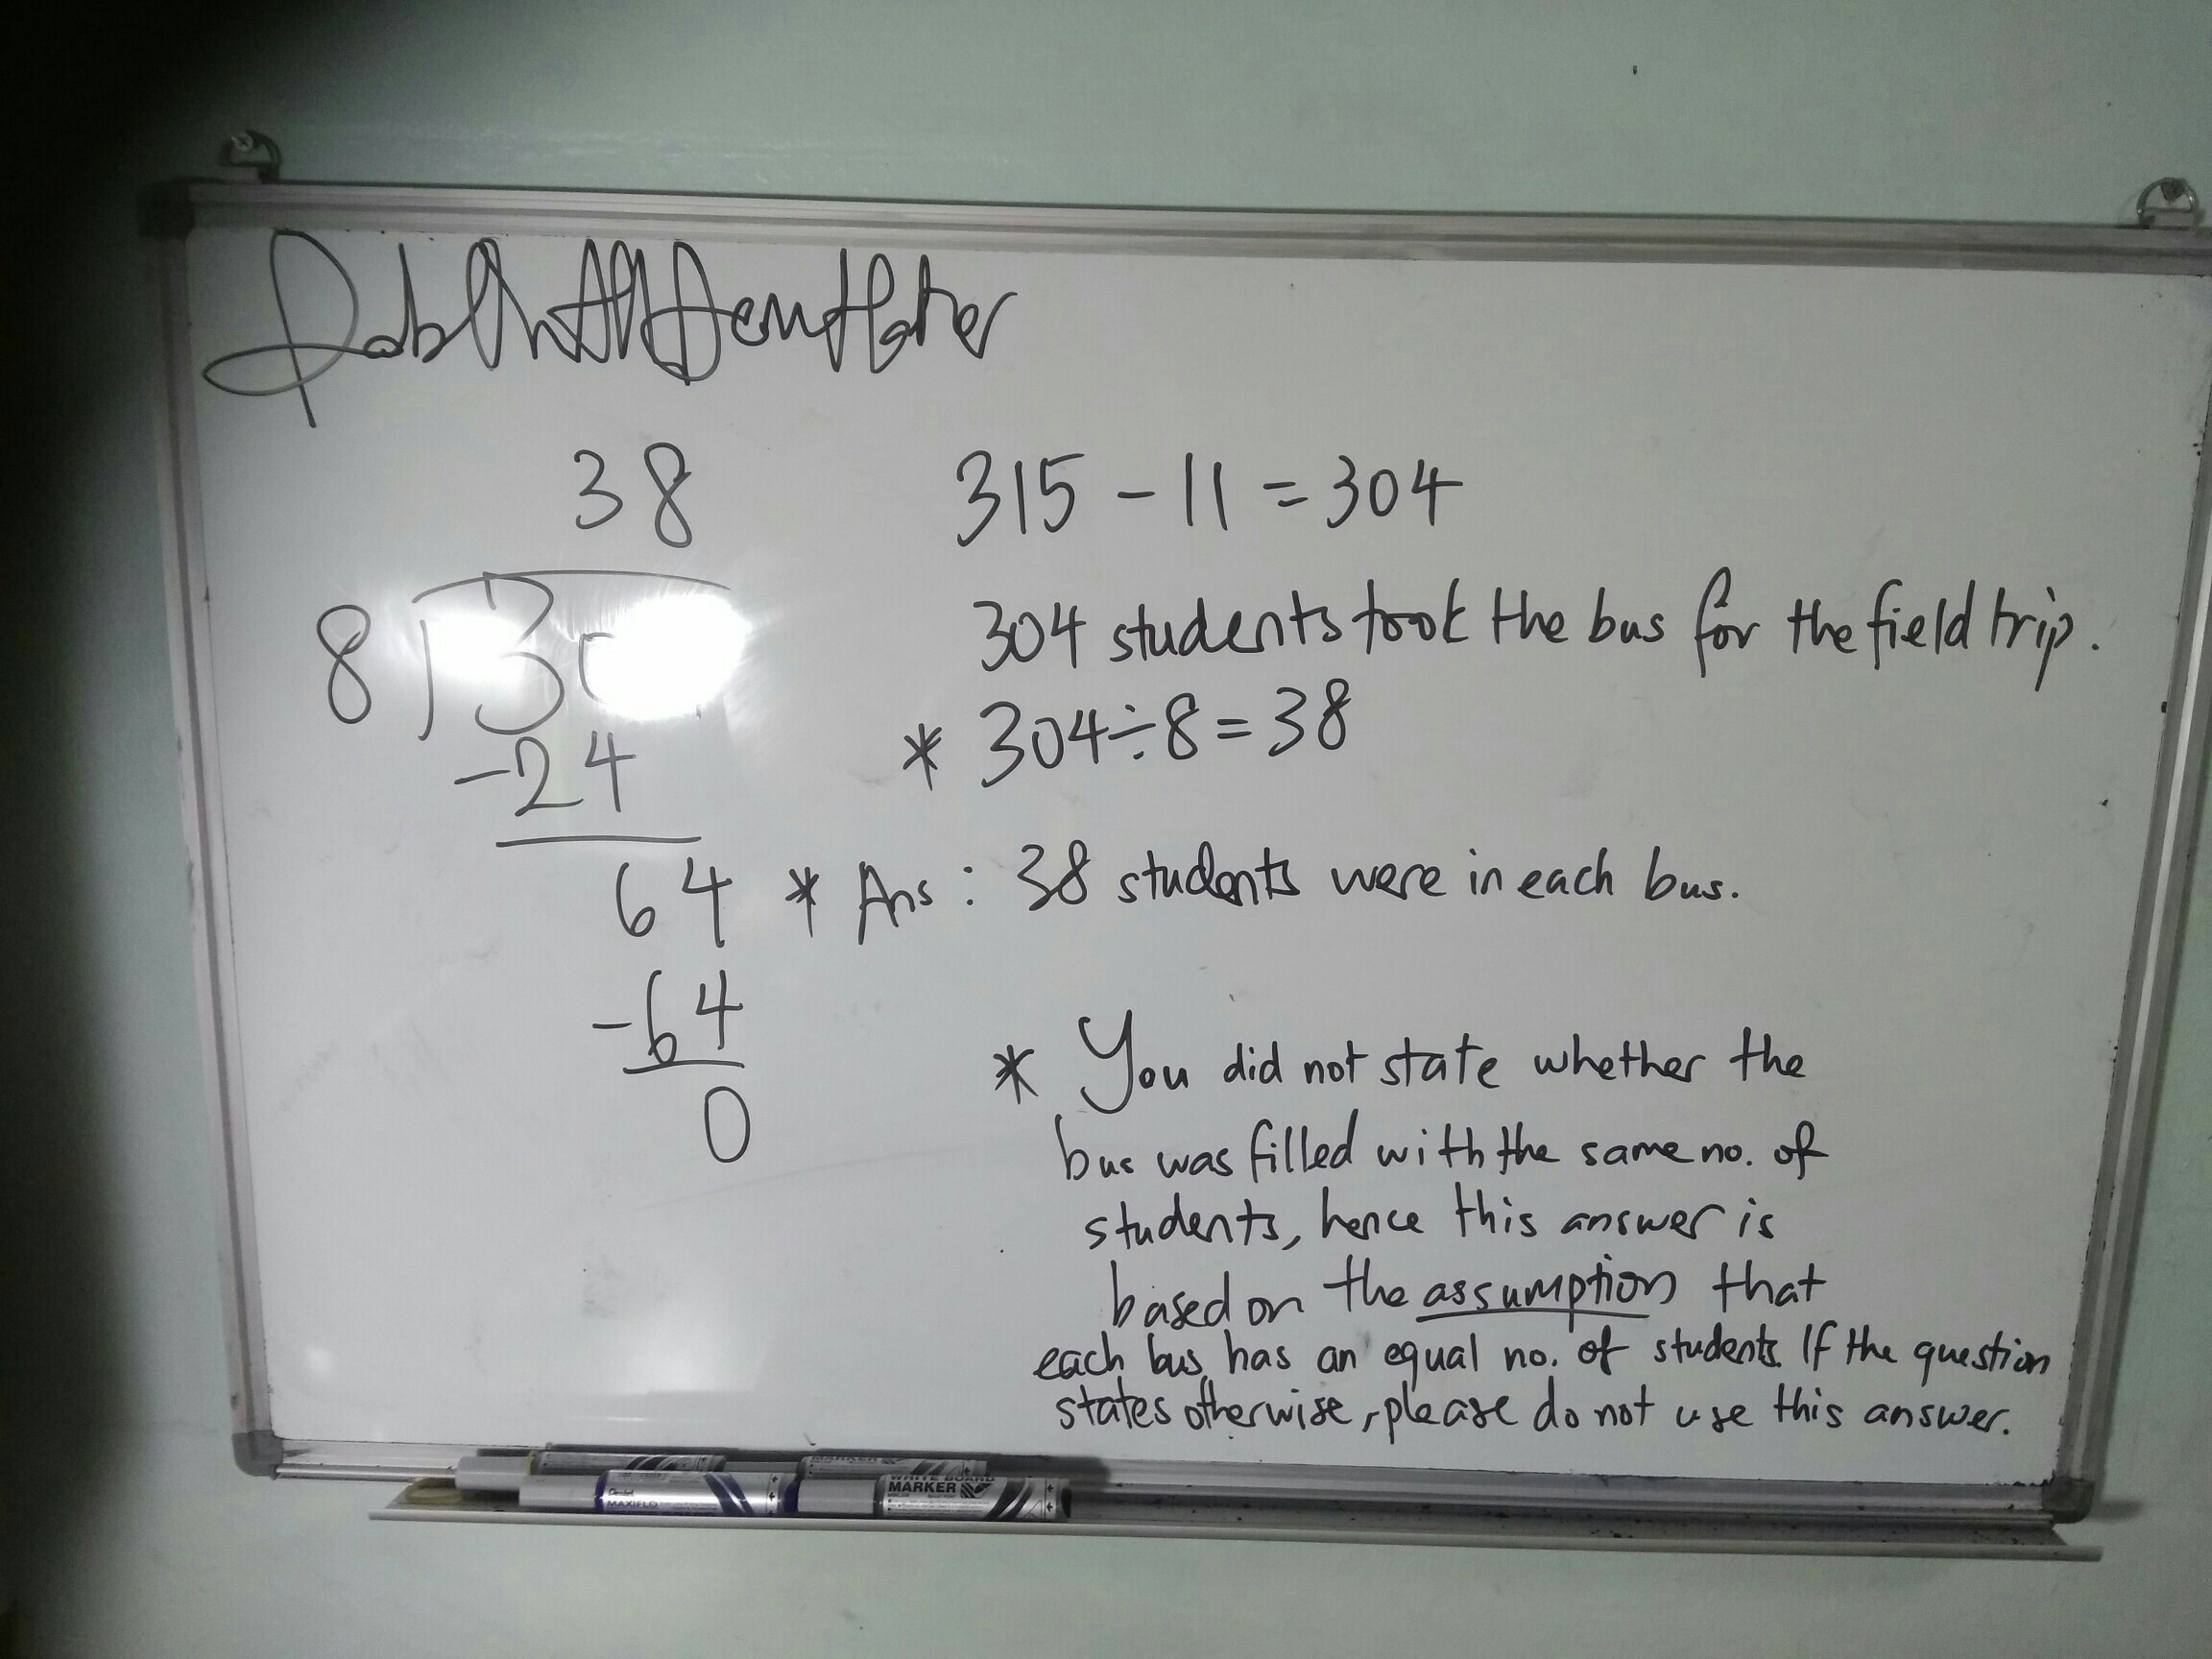 38
8 30
-24
64
-64
0
315 - 11 = 304
304 students took the bus for the field trip.
* 304÷8 = 38
* Ans : 38 students were in each bus.
* You did not state whether the
bus was filled with the same no. of
students, hence this answer is
based on the assumption that
each bus has an equal no. of students. If the question
states otherwise, please do not use this answer.
Pentel
MAXIFLO
MARKER
WHITE BOARD
MARKER